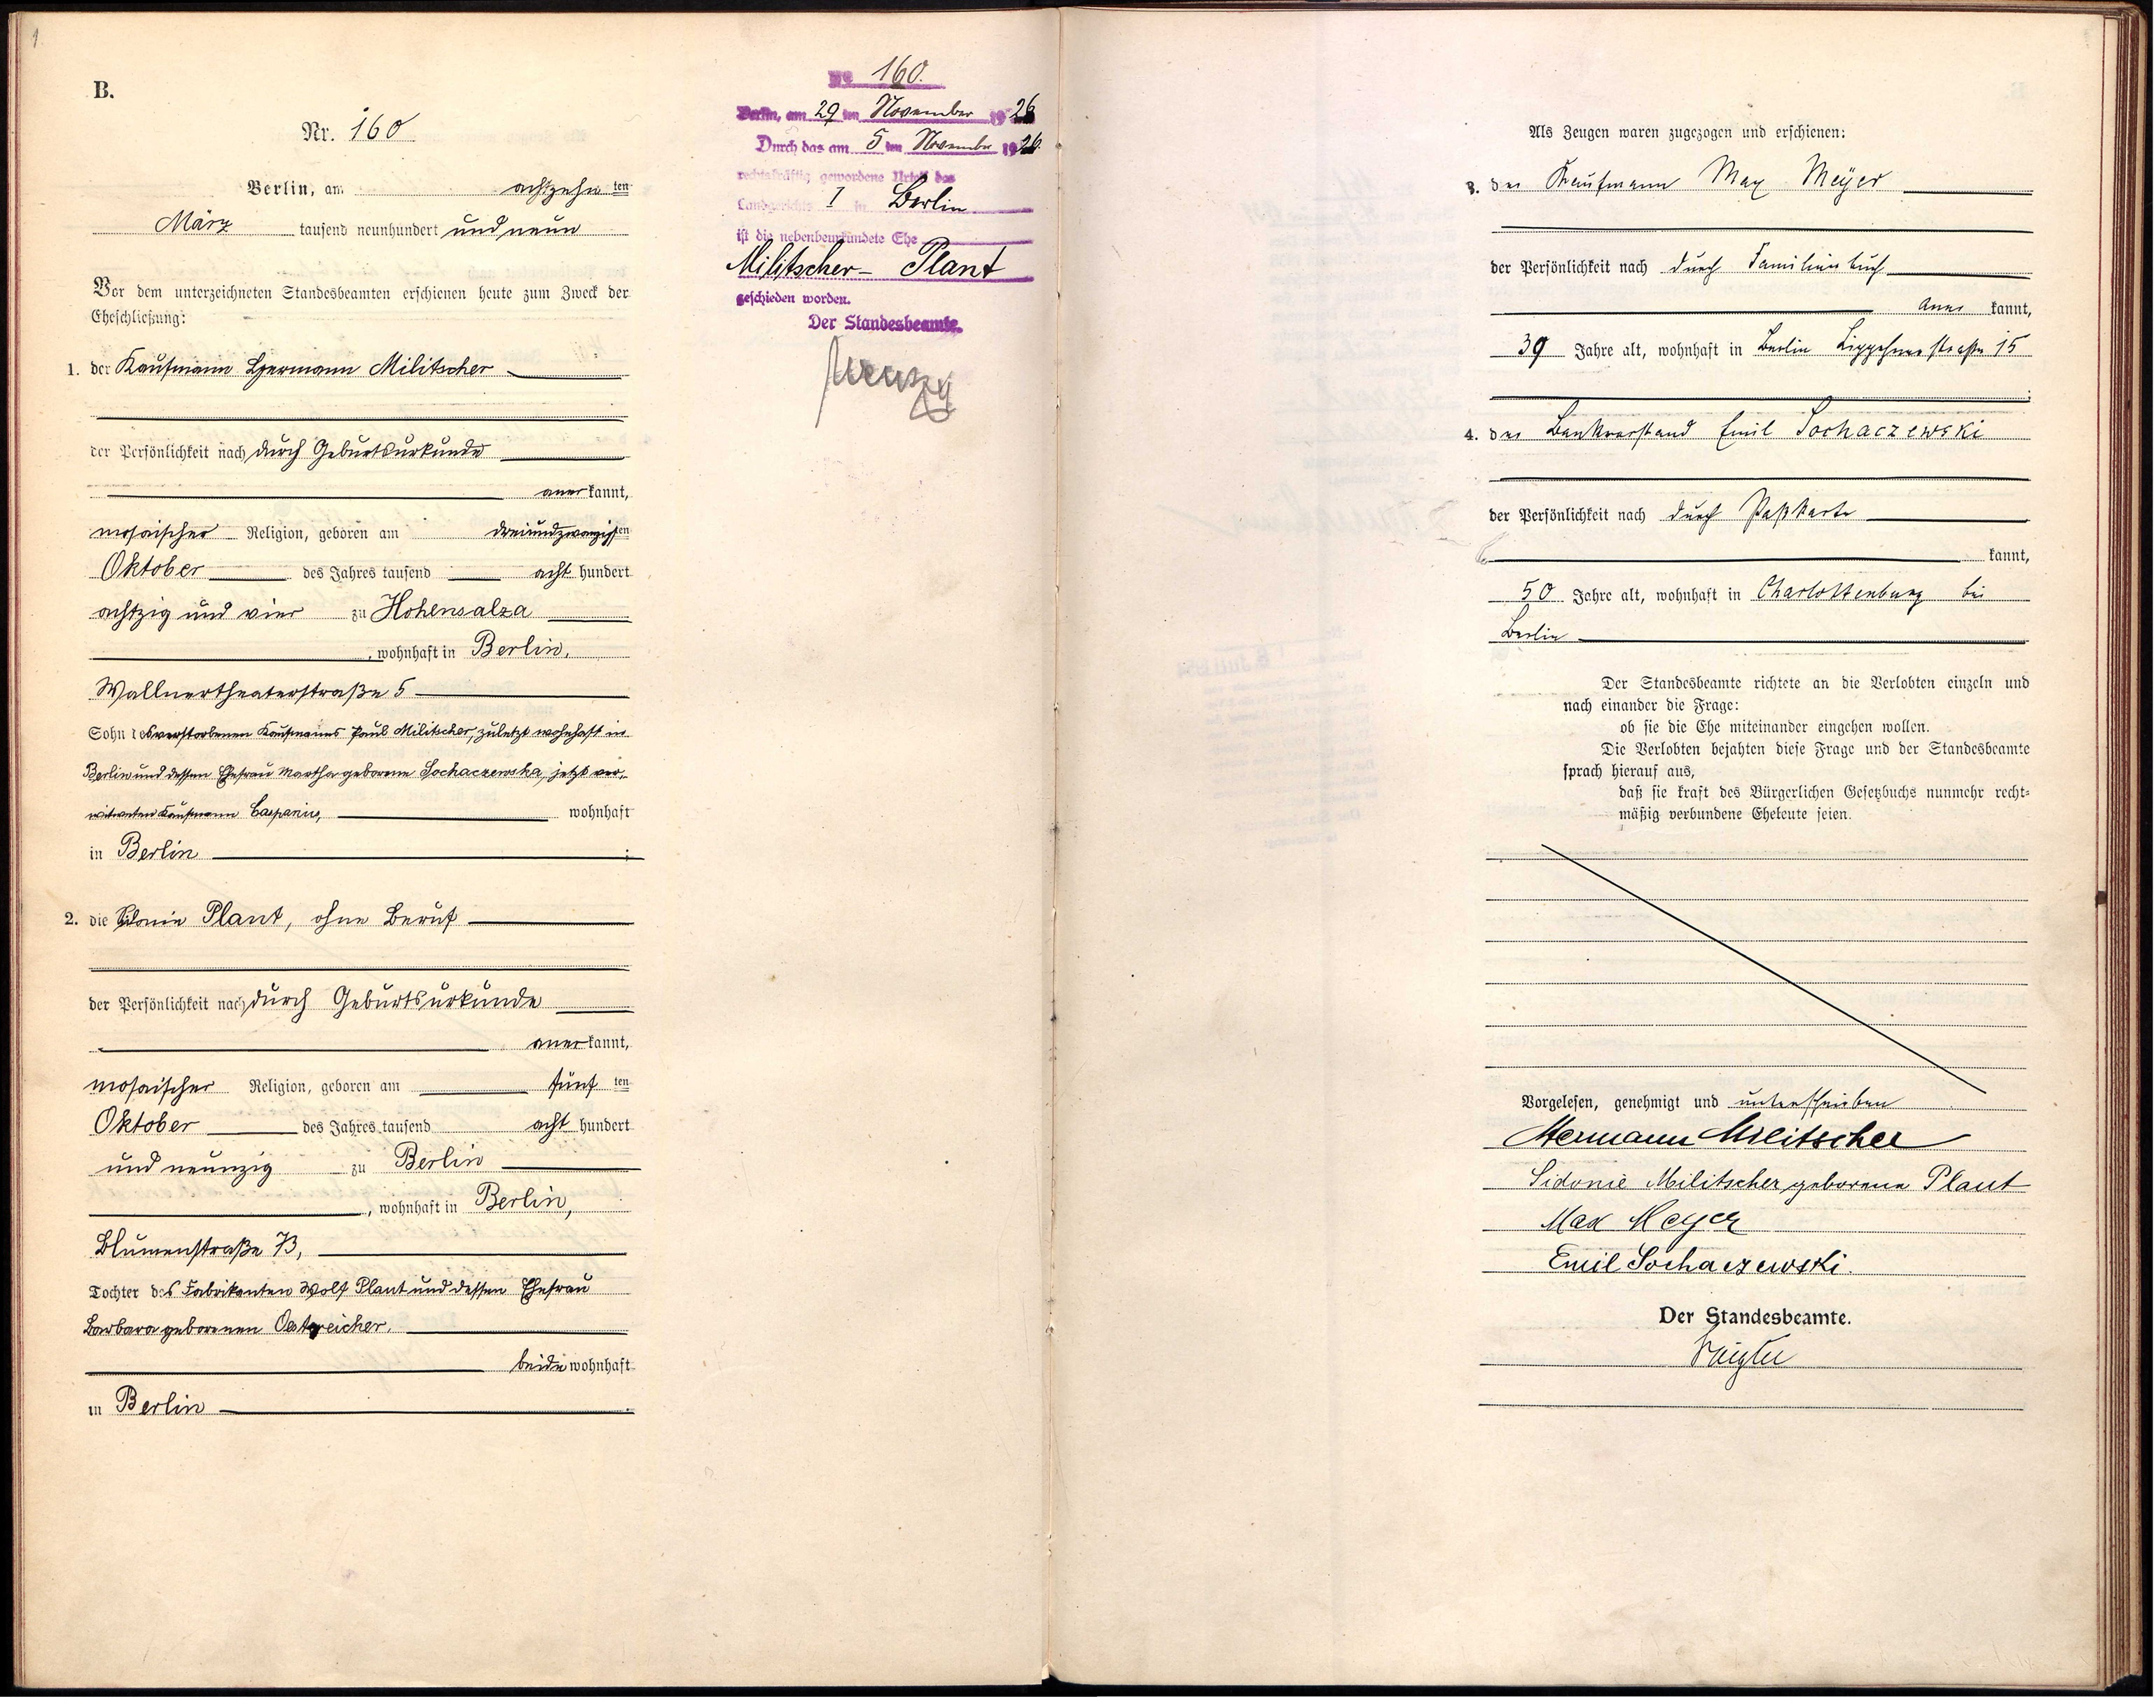 1
B.
Nr. 160
Berlin, am achtzehn ten
März tausend neunhundert und neun
Vor dem unterzeichneten Standesbeamten erschienen heute zum Zweck der
Eheschließung:
1. der Kaufmann Hermann Militscher
der Persönlichkeit nach durch Geburtsurkunde
aner kannt,
mosaischer Religion, geboren am dreiundzwanzigsten
Oktober des Jahres tausend acht hundert
achtzig und vier zu Hohensalza
, wohnhaft in Berlin,
Wallnertheaterstraße 5
Sohn des verstorbenen Kaufmanns Paul Militscher, zuletzt wohnhaft in
Berlin und dessen Ehefrau Martha geborene Sochaczewska, jetzt ver,
witweten Kaufmann wohnhaft
in Berlin ;
2. die Sidonie Plant, ohne Beruf
der Persönlichkeit nach durch Geburtsurkunde
aner kannt,
mosaischer Religion, geboren am fünf ten
Oktober des Jahres tausend acht hundert
und neunzig zu Berlin
, wohnhaft in Berlin,
Blumenstraße 73,
Tochter des Fabrikanten Wolf Plant und dessen Ehefrau
Barbara geborenen Oestreicher,
beide wohnhaft
in Berlin .
No 160.
Berlin, am 29 ten November 1926
Durch das am 5 ten November 1926
rechtskräftig gewordene Urteil des
Landgerichts I in Berlin
ist die nebenbeurkundete Ehe
Militscher - Plant
geschieden worden.
Der Standesbeamte.
Als Zeugen waren zugezogen und erschienen:
3. der Kaufmann Max Meyer
der Persönlichkeit nach durch Familienbuch
aner kannt,
39 Jahre alt, wohnhaft in Berlin Lippehnerstraße 15
;
4. der Bankvorstand Emil Sochaczewski
der Persönlichkeit nach durch Paßkarte
kannt,
50 Jahre alt, wohnhaft in Charlottenburg bei
Berlin
Der Standesbeamte richtete an die Verlobten einzeln und
nach einander die Frage:
ob sie die Ehe miteinander eingehen wollen.
Die Verlobten bejahten diese Frage und der Standesbeamte
sprach hierauf aus,
daß sie kraft des Bürgerlichen Gesetzbuchs nunmehr recht-
mäßig verbundene Eheleute seien.
Vorgelesen, genehmigt und unterschrieben
Hermann Militscher
Sidonie Militscher geborene Plaut
Max Meyer
Emil Sochaczewski.
Der Standesbeamte.